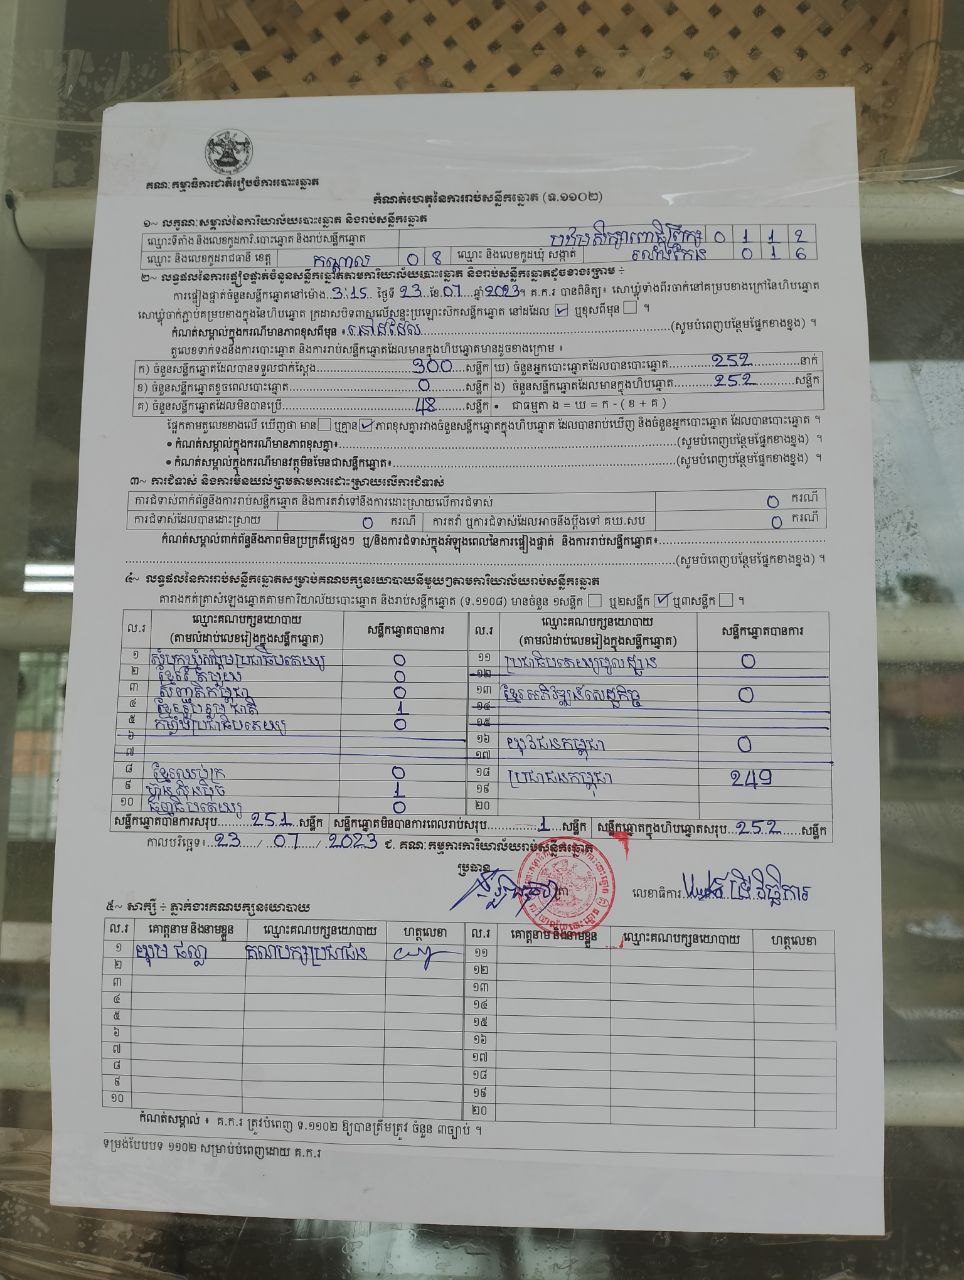 គណៈកម្មាធិការជាតិរៀបចំការបោះឆ្នោត
កំណត់ហេតុនៃការរាប់សន្លឹកឆ្នោត (ទ.១១០២)
១~ លក្ខណៈសម្គាល់នៃការិយាល័យបោះឆ្នោត និងរាប់សន្លឹកឆ្នោត
ឈ្មោះទីតាំង និងលេខកូដការិ.បោះឆ្នោត និងរាប់សន្លឹកឆ្នោត 0 1 1 2
ឈ្មោះ និងលេខកូដរាជធានី ខេត្ត កណ្តាល 0 8 ឈ្មោះ និងលេខកូដឃុំ សង្កាត់ 0 1 6
២~ លទ្ធផលនៃការផ្ទៀងផ្ទាត់ចំនួនសន្លឹកឆ្នោតតាមការិយាល័យបោះឆ្នោត និងរាប់សន្លឹកឆ្នោតដូចខាងក្រោម ÷
ការផ្ទៀងផ្ទាត់ចំនួនសន្លឹកឆ្នោតនៅម៉ោង 3:15 ថ្ងៃទី 23 ខែ 07 ឆ្នាំ 2023។ គ.ក.រ បានពិនិត្យ៖ សោឃ្លុំទាំងពីរចាក់នៅគម្របខាងក្រៅនៃហិបឆ្នោត
សោឃ្លុំចាក់ភ្ជាប់គម្របខាងក្នុងនៃហិបឆ្នោត ក្រដាសបិទពាសលើសន្ទះប្រឡោះស៊កសន្លឹកឆ្នោត នៅដដែល ☑ ឬខុសពីមុន ☐ ។
កំណត់សម្គាល់ក្នុងករណីមានភាពខុសពីមុន ៖ នៅដដែល (សូមបំពេញបន្ថែមផ្នែកខាងខ្នង) ។
តួលេខទាក់ទងនឹងការបោះឆ្នោត និងការរាប់សន្លឹកឆ្នោតដែលមានក្នុងហិបឆ្នោតមានដូចខាងក្រោម ៖
ក) ចំនួនសន្លឹកឆ្នោតដែលបានទទួលជាក់ស្តែង 300 សន្លឹក ឃ) ចំនួនអ្នកបោះឆ្នោតដែលបានបោះឆ្នោត 252 នាក់
ខ) ចំនួនសន្លឹកឆ្នោតខូចពេលបោះឆ្នោត 0 សន្លឹក ង) ចំនួនសន្លឹកឆ្នោតដែលមានក្នុងហិបឆ្នោត 252 សន្លឹក
គ) ចំនួនសន្លឹកឆ្នោតដែលមិនបានប្រើ 48 សន្លឹក • ជាធម្មតា ង = ឃ = ក - ( ខ + គ )
ផ្អែកតាមតួលេខខាងលើ ឃើញថា មាន ☐ ឬគ្មាន ☑ ភាពខុសគ្នារវាងចំនួនសន្លឹកឆ្នោតក្នុងហិបឆ្នោត ដែលបានរាប់ឃើញ និងចំនួនអ្នកបោះឆ្នោត ដែលបានបោះឆ្នោត ។
• កំណត់សម្គាល់ក្នុងករណីមានភាពខុសគ្នា៖ (សូមបំពេញបន្ថែមផ្នែកខាងខ្នង) ។
• កំណត់សម្គាល់ក្នុងករណីមានវត្ថុមិនមែនជាសន្លឹកឆ្នោត៖ (សូមបំពេញបន្ថែមផ្នែកខាងខ្នង) ។
៣~ ការជំទាស់ និងការមិនយល់ព្រមតាមការដោះស្រាយលើការជំទាស់
ការជំទាស់ពាក់ព័ន្ធនឹងការរាប់សន្លឹកឆ្នោត និងការតវ៉ាទៅនឹងការដោះស្រាយលើការជំទាស់ 0 ករណី
ការជំទាស់ដែលបានដោះស្រាយ 0 ករណី ការតវ៉ា ឬការជំទាស់ដែលអាចនឹងប្តឹងទៅ គឃ.សប 0 ករណី
កំណត់សម្គាល់ពាក់ព័ន្ធនឹងភាពមិនប្រក្រតីផ្សេងៗ ឬ/និងការជំទាស់ក្នុងអំឡុងពេលនៃការផ្ទៀងផ្ទាត់ និងការរាប់សន្លឹកឆ្នោត៖
(សូមបំពេញបន្ថែមផ្នែកខាងខ្នង) ។
៤~ លទ្ធផលនៃការរាប់សន្លឹកឆ្នោតសម្រាប់គណបក្សនយោបាយនីមួយៗតាមការិយាល័យរាប់សន្លឹកឆ្នោត
តារាងកត់ត្រាសំឡេងឆ្នោតតាមការិយាល័យបោះឆ្នោត និងរាប់សន្លឹកឆ្នោត (ទ.១១០៨) មានចំនួន ១សន្លឹក ☐ ឬ២សន្លឹក ☑ ឬ៣សន្លឹក ☐ ។
ល.រ ឈ្មោះគណបក្សនយោបាយ (តាមលំដាប់លេខរៀងក្នុងសន្លឹកឆ្នោត) សន្លឹកឆ្នោតបានការ ល.រ ឈ្មោះគណបក្សនយោបាយ (តាមលំដាប់លេខរៀងក្នុងសន្លឹកឆ្នោត) សន្លឹកឆ្នោតបានការ
១ សំបុកឃ្មុំសង្គមប្រជាធិបតេយ្យ 0 ១១ ប្រជាធិបតេយ្យមូលដ្ឋាន 0
២ ខ្មែររួបរួម 0 ១២
៣ សញ្ជាតិកម្ពុជា 0 ១៣ ខ្មែរអភិវឌ្ឍន៍សេដ្ឋកិច្ច 0
៤ ខ្មែររួបរួមជាតិ 1 ១៤
៥ កម្លាំងប្រជាធិបតេយ្យ 0 ១៥
៦ ១៦ យុវជនកម្ពុជា 0
៧ ១៧
៨ ខ្មែរឈប់ក្រ 0 ១៨ ប្រជាជនកម្ពុជា 249
៩ ហ៊្វុនស៊ិនប៉ិច 1 ១៩
១០ ធម្មាធិបតេយ្យ 0 ២០
សន្លឹកឆ្នោតបានការសរុប 251 សន្លឹក សន្លឹកឆ្នោតមិនបានការពេលរាប់សរុប 1 សន្លឹក សន្លឹកឆ្នោតក្នុងហិបឆ្នោតសរុប 252 សន្លឹក
កាលបរិច្ឆេទ៖ 23 / 07 / 2023 ជ. គណៈកម្មការការិយាល័យរាប់សន្លឹកឆ្នោត
ប្រធាន
លេខាធិការ
៥~ សាក្សី ÷ ភ្នាក់ងារគណបក្សនយោបាយ
ល.រ គោត្តនាម និងនាមខ្លួន ឈ្មោះគណបក្សនយោបាយ ហត្ថលេខា ល.រ គោត្តនាម និងនាមខ្លួន ឈ្មោះគណបក្សនយោបាយ ហត្ថលេខា
១ យុម ផល្លា គណបក្សប្រជាជន ១១
២ ១២
៣ ១៣
៤ ១៤
៥ ១៥
៦ ១៦
៧ ១៧
៨ ១៨
៩ ១៩
១០ ២០
កំណត់សម្គាល់ ៖ គ.ក.រ ត្រូវបំពេញ ទ.១១០២ ឱ្យបានត្រឹមត្រូវ ចំនួន ៣ច្បាប់ ។
ទម្រង់បែបបទ ១១០២ សម្រាប់បំពេញដោយ គ.ក.រ